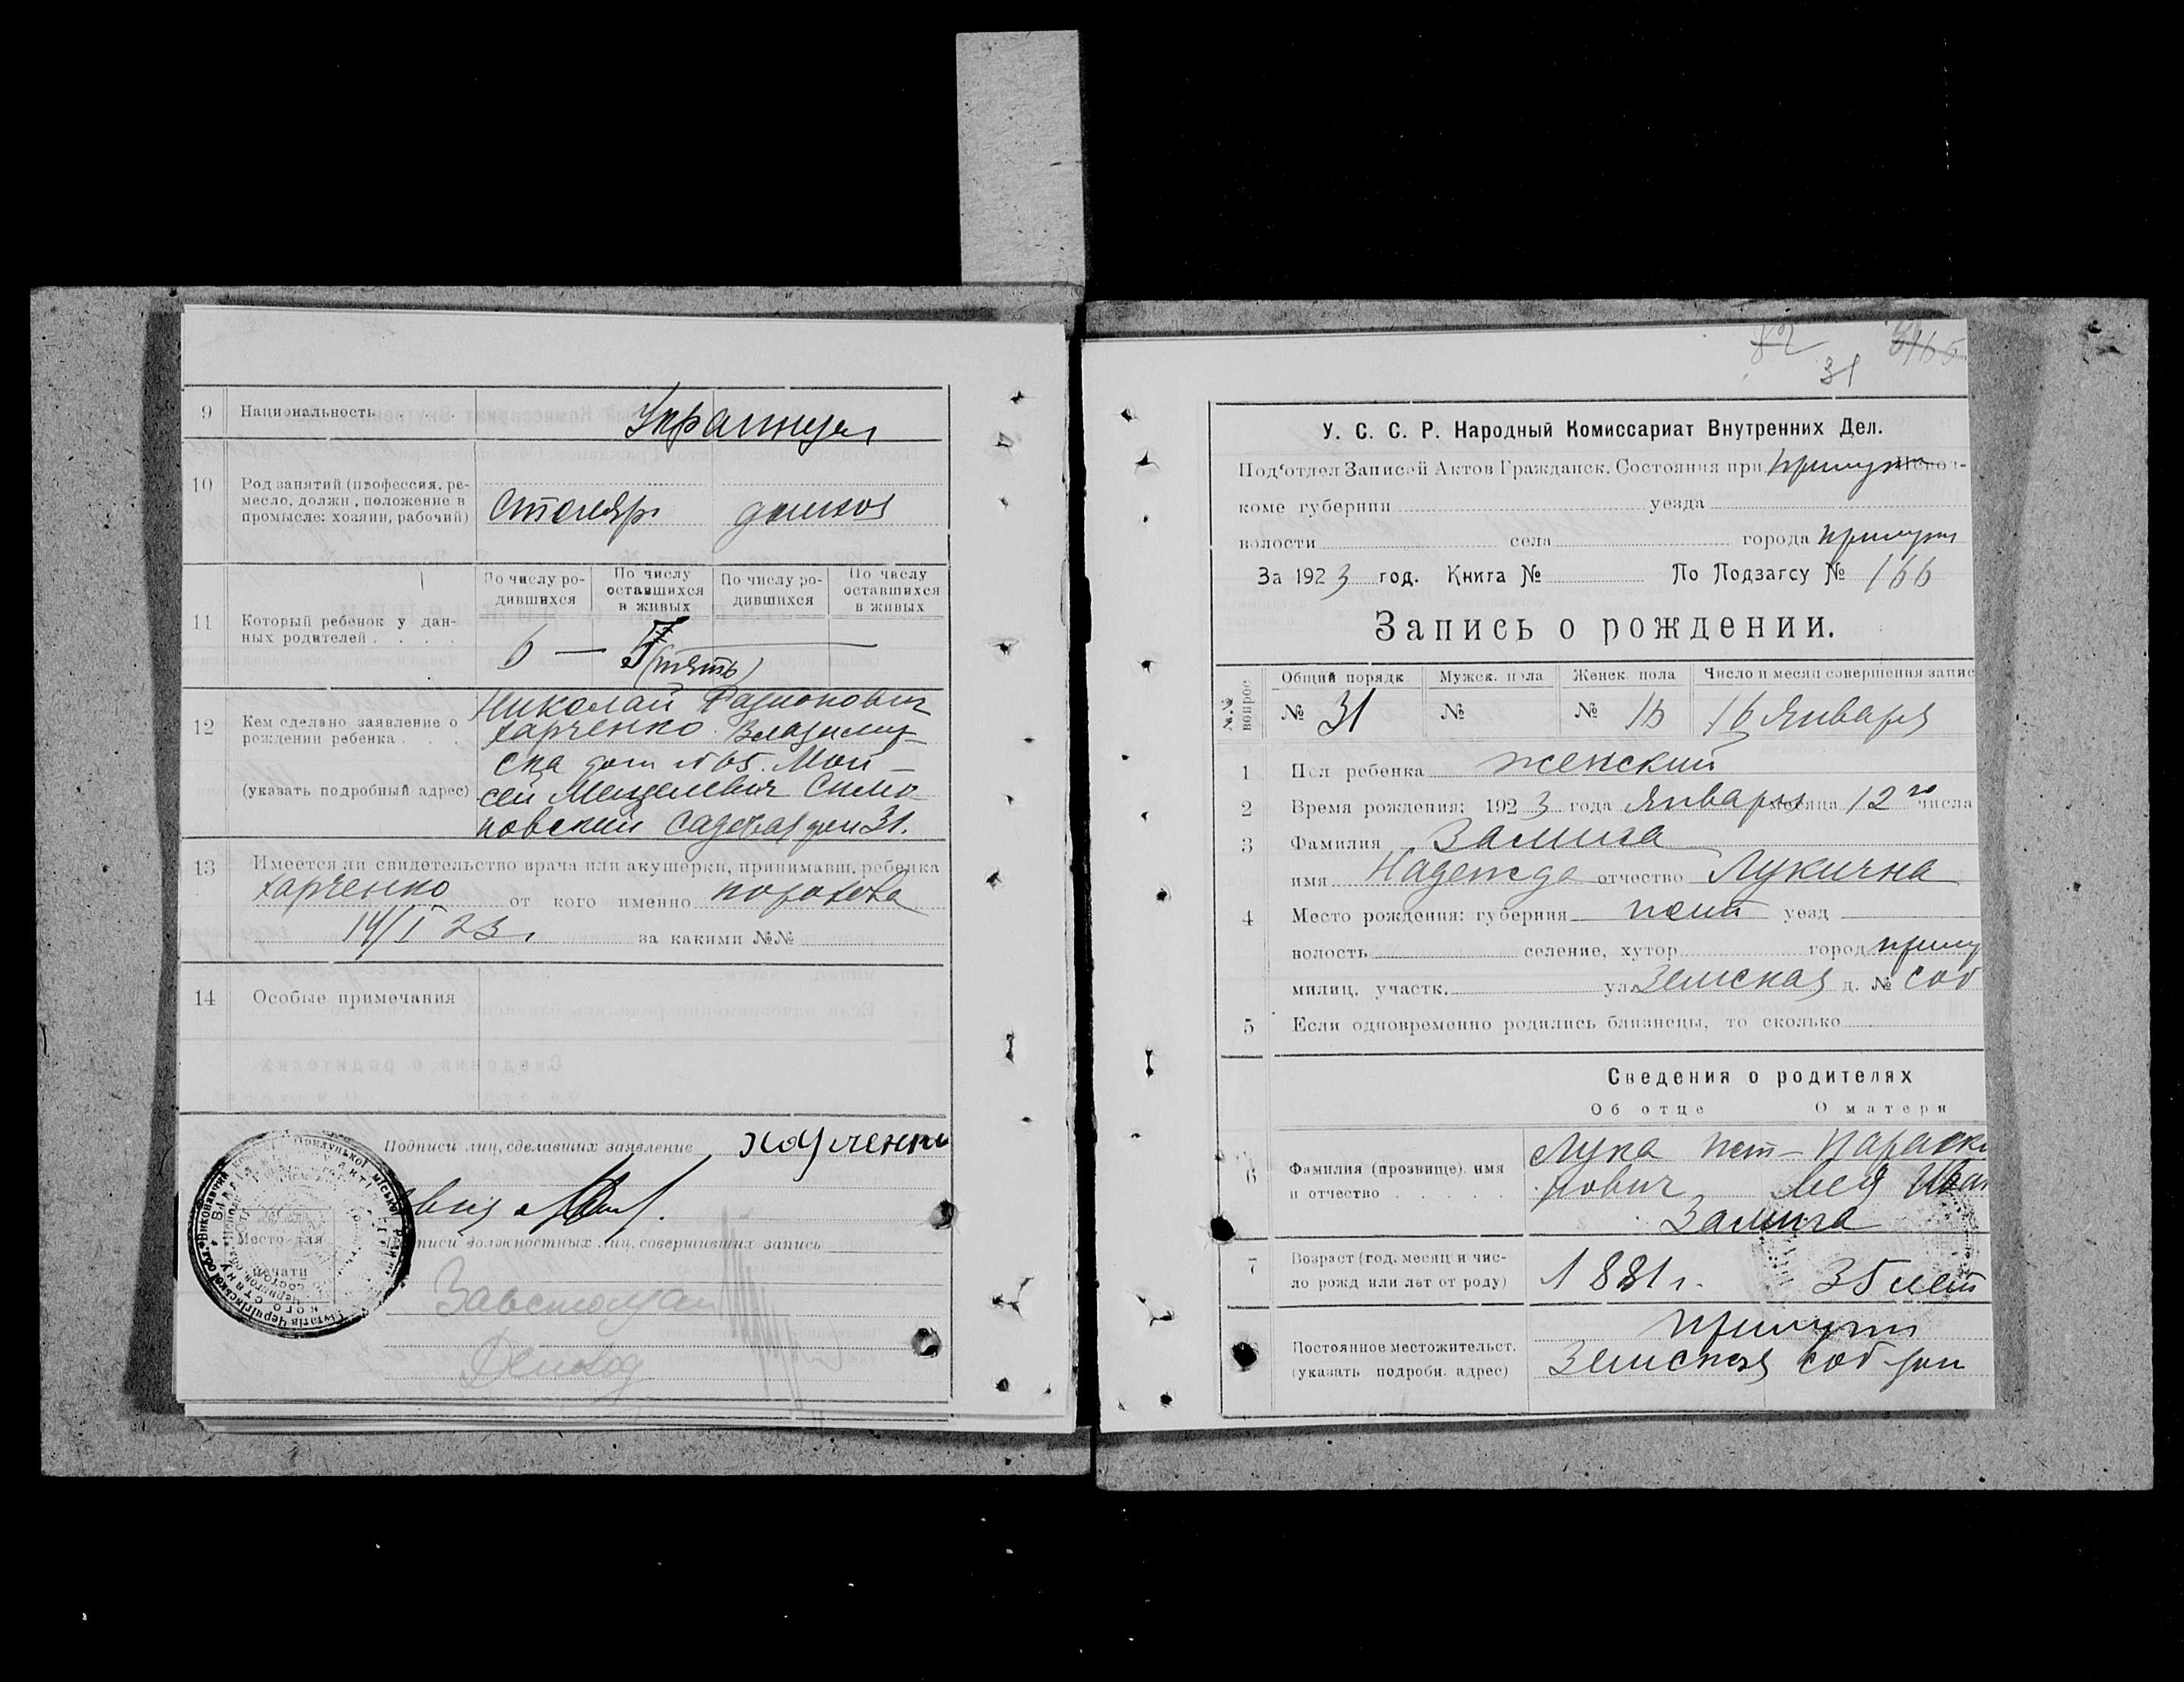 9 Национальность . . . Украинцы
10 Род занятий (профессия, ре-
месло, должн., положение в
промысле: хозяин, рабочий)
Столяр домхоз
11 Который ребенок у дан-
ных родителей . . . .
По числу ро-
дившихся
По числу
оставшихся
в живых
По числу ро-
дившихся
По числу
оставшихся
в живых
6 — 5 (пять)
12 Кем сделано заявление о
рождении ребенка . . .
(указать подробный адрес)
Николай Радионович
Харченко Владимир-
ска дом № 65. Мой-
сей Менделевич Симо-
новский Садовая дом 31.
13 Имеется ли свидетельство врача или акушерки, принимавш. ребенка
Харченко от кого именно
14/I 23 г. за какими №№
14 Особые примечания
Подписи лиц, сделавших заявление Харченко
Место для
печати
Подписи должностных лиц, совершивших запись
82
31
У. С. С. Р. Народный Комиссариат Внутренних Дел.
Под'отдел Записей Актов Гражданск. Состояния при Прилук Испол-
коме губернии уезда
волости села города Прилуки
За 1923 год. Книга № По Подзагсу № 166
Запись о рождении.
№№ вопрос
Общий порядк. Мужск. пола Женск. пола Число и месяц совершения запис
№ 31 № № 15 16 Января
1 Пол ребенка женский
2 Время рождения: 1923 года Января месяца 12го числа
3 Фамилия Залига
имя Надежда отчество Лукична
4 Место рождения: губерния Полт уезд
волость селение, хутор город Прилу
милиц. участк. ул. Земская д. № соб
5 Если одновременно родились близнецы, то сколько
Сведения о родителях
Об отце О матери
6 Фамилия (прозвище), имя
и отчество . . . . .
Лука Пет- Параске
рович вея Иван
Залига
7 Возраст (год, месяц и чис-
ло рожд. или лет от роду)
1881 г. 35 лет
Постоянное местожительст.
(указать подробн. адрес)
Прилуки
Земская соб дом